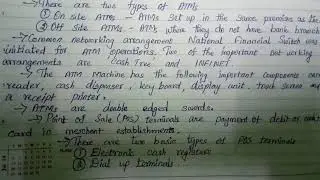 → There are two types of ATMs
① On site ATMs - ATMs set up in the same premises as the
② Off site ATMs - ATMs where they do not have bank branch
→ Common networking arrangement National Financial Switch was
initiated for ATM operations. Two of the important networking
arrangements are Cash Tree and INFINET.
→ The ATM machine has the following important components card
reader, cash dispenser, key board, display unit, touch screen and
a receipt printer.
→ ATMs are double edged swords.
→ Point of Sale (POS) terminals are payment of debit or credit
card in merchant establishments.
→ There are two basic types of POS terminals
① Electronic cash registers
② Dial up terminals